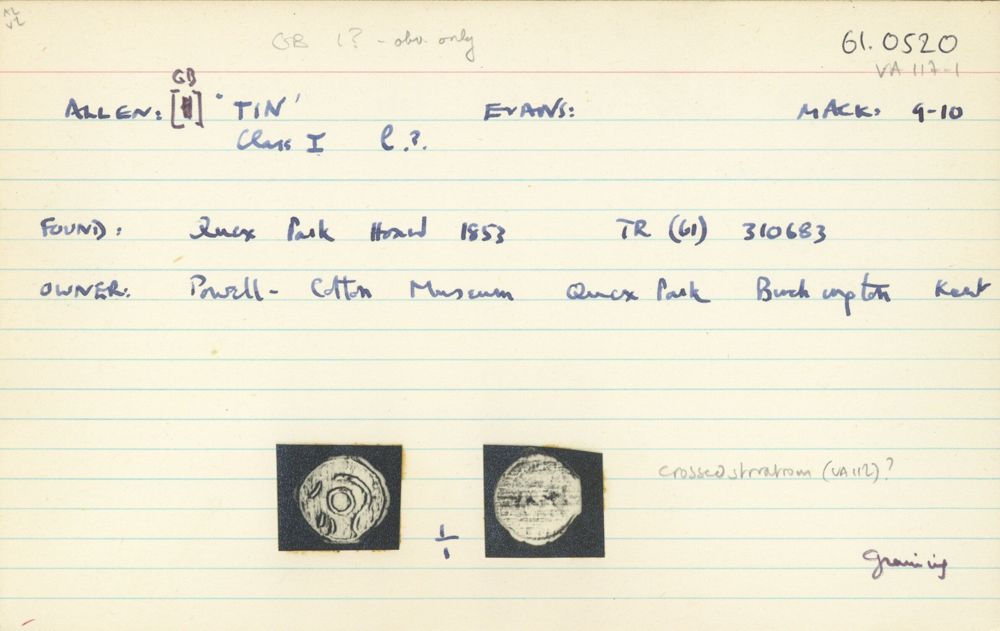 GB 1? - obv. only
61.0520
VA 117-1
GB
ALLEN: [ ] 'TIN' EVANS: MACK: 9-10
Class I l.?.
FOUND: Quex Park Hoard 1853 TR (61) 310683
OWNER: Powell-Cotton Museum Quex Park Birchington Kent
crossed straws (VA112)?
1/1
graining